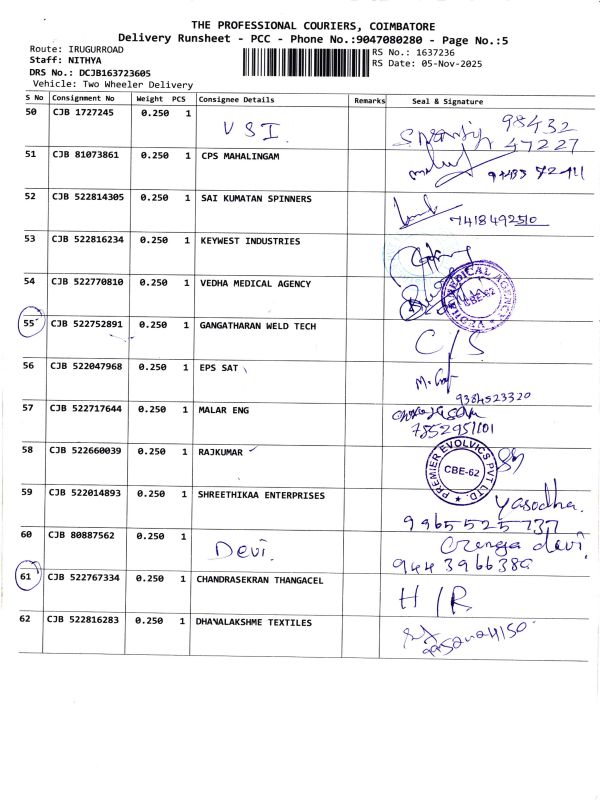 THE PROFESSIONAL COURIERS, COIMBATORE
Delivery Runsheet - PCC - Phone No.:9047080280 - Page No.:5
Route: IRUGURROAD
Staff: NITHYA
DRS No.: DCJB163723605
Vehicle: Two Wheeler Delivery
RS No.: 1637236
RS Date: 05-Nov-2025
S No Consignment No Weight PCS Consignee Details Remarks Seal & Signature
50 CJB 1727245 0.250 1 VSI. 98432 47227
51 CJB 81073861 0.250 1 CPS MAHALINGAM
52 CJB 522814305 0.250 1 SAI KUMATAN SPINNERS 7418492510
53 CJB 522816234 0.250 1 KEYWEST INDUSTRIES
54 CJB 522770810 0.250 1 VEDHA MEDICAL AGENCY VEDHA MEDICAL AGENCY CBE-62
55 CJB 522752891 0.250 1 GANGATHARAN WELD TECH C/S
56 CJB 522047968 0.250 1 EPS SAT 9384523320
57 CJB 522717644 0.250 1 MALAR ENG 7852951101
58 CJB 522660039 0.250 1 RAJKUMAR PREMIER EVOLVICS PVT LTD. CBE-62
59 CJB 522014893 0.250 1 SHREETHIKAA ENTERPRISES Yasodha. 9965525737
60 CJB 80887562 0.250 1 Devi. devi 9443966389
61 CJB 522767334 0.250 1 CHANDRASEKRAN THANGACEL H/R
62 CJB 522816283 0.250 1 DHANALAKSHME TEXTILES